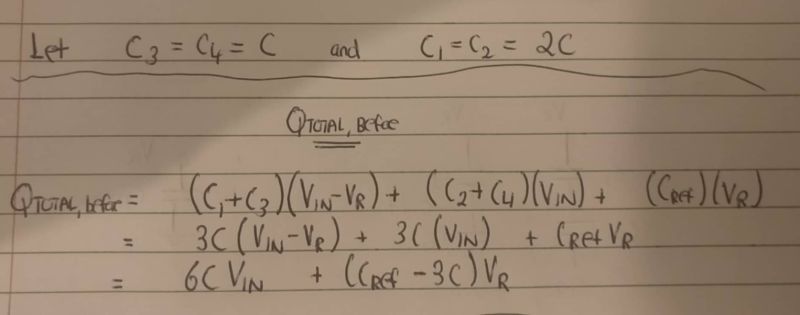 Let C₃ = C₄ = C and C₁ = C₂ = 2C
Q_TOTAL, Before
Q_TOTAL, before = (C₁+C₃)(V_IN−V_R) + (C₂+C₄)(V_IN) + (C_Ref)(V_R)
= 3C(V_IN−V_R) + 3C(V_IN) + C_Ref V_R
= 6C V_IN + (C_Ref − 3C)V_R